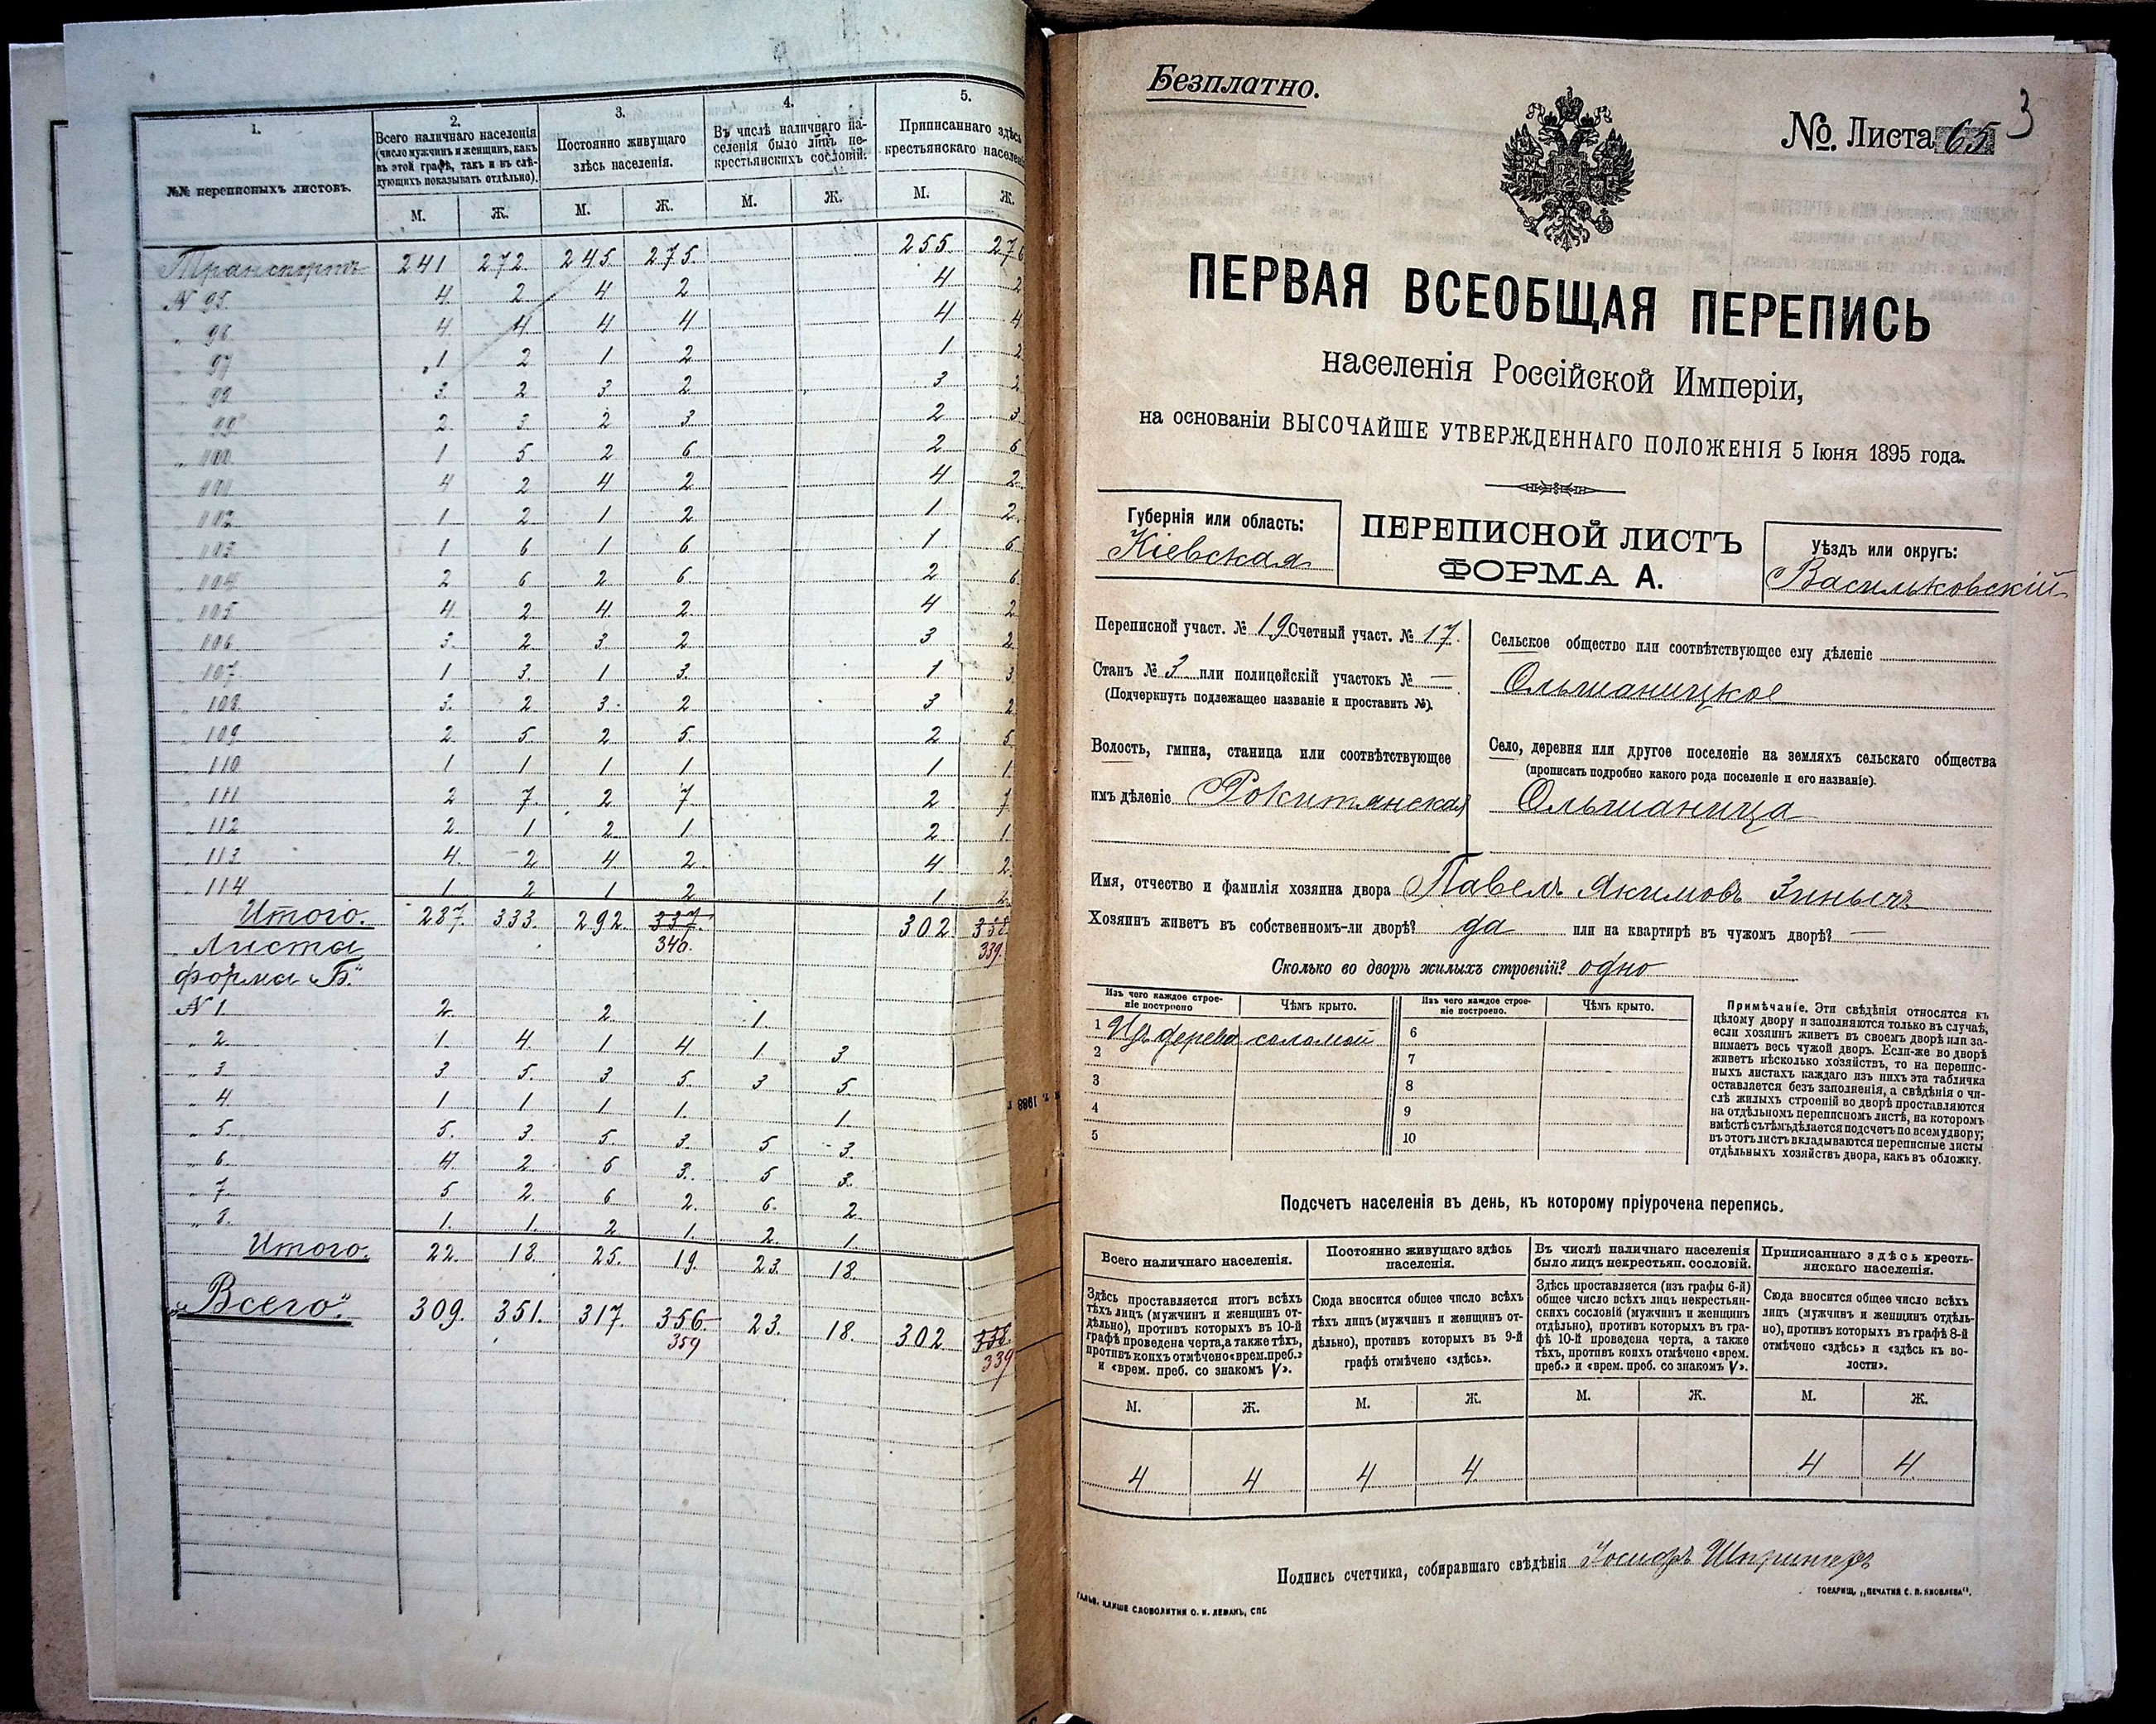 1.
№№ переписныхъ листовъ.
2.
Всего наличнаго населенія
(число мужчинъ и женщинъ, какъ
въ этой графѣ, такъ и въ слѣ-
дующихъ показывать отдѣльно).
3.
Постоянно живущаго
здѣсь населенія.
4.
Въ числѣ наличнаго на-
селенія было лицъ не-
крестьянскихъ сословій.
5.
Приписаннаго здѣсь
крестьянскаго населенія
М. Ж. М. Ж. М. Ж. М. Ж.
Транспортъ 241 272 245 275 255 276
№ 95. 4 2 4 2 4 2
„ 96 4 4 4 4 4 4
„ 97 1 2 1 2 1 2
„ 98 3 2 3 2 3 2
„ 99 2 3 2 3 2 3
„ 100 1 5 2 6 2 6
„ 101 4 2 4 2 4 2
„ 102 1 2 1 2 1 2
„ 103 1 6 1 6 1 6
„ 104 2 6 2 6 2 6
„ 105 4 2 4 2 4 2
„ 106 3 2 3 2 3 2
„ 107 1 3 1 3 1 3
„ 108 3 2 3 2 3 2
„ 109 2 5 2 5 2 5
„ 110 1 1 1 1 1 1
„ 111 2 7 2 7 2 7
„ 112 2 1 2 1 2 1
„ 113 4 2 4 2 4 2
„ 114 1 2 1 2 1 2
Итого. 287. 333. 292. 337. 302. 338.
340. 339.
Листа
форма „Б.“
№ 1. 2 2 1.
„ 2 1 4 1 4 1 3
„ 3 3 5 3 5 3 5
„ 4 1 1 1 1 1.
„ 5. 5 3 5 3 5 3
„ 6 4 2 5 3 5 3
„ 7 5 2 6 2 6 2
„ 8. 1 1 2 1 2 1
Итого. 22. 18. 25. 19. 23. 18.
„Всего“. 309. 351. 317. 356. 23. 18. 302 338.
359 339
Безплатно.
№. Листа 65
3
ПЕРВАЯ ВСЕОБЩАЯ ПЕРЕПИСЬ
населенія Россійской Имперіи,
на основаніи ВЫСОЧАЙШЕ УТВЕРЖДЕННАГО ПОЛОЖЕНІЯ 5 Іюня 1895 года.
Губернія или область:
Кіевская
ПЕРЕПИСНОЙ ЛИСТЪ
ФОРМА А.
Уѣздъ или округъ:
Васильковскій
Переписной участ. № 19 Счетный участ. № 17.
Станъ № 3 или полицейскій участокъ № —
(Подчеркнуть подлежащее названіе и проставить №).
Волость, гмина, станица или соотвѣтствующее
имъ дѣленіе Рокитянская
Сельское общество или соотвѣтствующее ему дѣленіе
Ольшаницкое
Село, деревня или другое поселеніе на земляхъ сельскаго общества
(прописать подробно какого рода поселеніе и его названіе).
Ольшаница
Имя, отчество и фамилія хозяина двора Павелъ Якимовъ Зинычъ
Хозяинъ живетъ въ собственномъ-ли дворѣ? да или на квартирѣ въ чужомъ дворѣ? —
Сколько во дворѣ жилыхъ строеній? одно
Изъ чего каждое строе-
ніе построено
Чѣмъ крыто.
Изъ чего каждое строе-
ніе построено.
Чѣмъ крыто.
1 Изъ дерева соломой 6
2 7
3 8
4 9
5 10
Примѣчаніе. Эти свѣдѣнія относятся къ
цѣлому двору и заполняются только въ случаѣ,
если хозяинъ живетъ въ своемъ дворѣ или за-
нимаетъ весь чужой дворъ. Если-же во дворѣ
живетъ нѣсколько хозяйствъ, то на перепис-
ныхъ листахъ каждаго изъ нихъ эта табличка
оставляется безъ заполненія, а свѣдѣнія о чи-
слѣ жилыхъ строеній во дворѣ проставляются
на отдѣльномъ переписномъ листѣ, на которомъ
вмѣстѣ съ тѣмъ дѣлается подсчетъ по всему двору;
въ этотъ листъ вкладываются переписные листы
отдѣльныхъ хозяйствъ двора, какъ въ обложку.
Подсчетъ населенія въ день, къ которому пріурочена перепись.
Всего наличнаго населенія.
Здѣсь проставляется итогъ всѣхъ
тѣхъ лицъ (мужчинъ и женщинъ от-
дѣльно), противъ которыхъ въ 10-й
графѣ проведена черта, а также тѣхъ,
противъ коихъ отмѣчено «врем. преб.»
и «врем. преб. со знакомъ V».
Постоянно живущаго здѣсь
населенія.
Сюда вносится общее число всѣхъ
тѣхъ лицъ (мужчинъ и женщинъ от-
дѣльно), противъ которыхъ въ 9-й
графѣ отмѣчено «здѣсь».
Въ числѣ наличнаго населенія
было лицъ некрестьян. сословій.
Здѣсь проставляется (изъ графы 6-й)
общее число всѣхъ лицъ некрестьян-
скихъ сословій (мужчинъ и женщинъ
отдѣльно), противъ которыхъ въ гра-
фѣ 10-й проведена черта, а также
тѣхъ, противъ коихъ отмѣчено «врем.
преб.» и «врем. преб. со знакомъ V».
Приписаннаго здѣсь кресть-
янскаго населенія.
Сюда вносится общее число всѣхъ
лицъ (мужчинъ и женщинъ отдѣль-
но), противъ которыхъ въ графѣ 8-й
отмѣчено «здѣсь» и «здѣсь въ во-
лости».
М. Ж. М. Ж. М. Ж. М. Ж.
4 4 4 4 4 4
Подпись счетчика, собиравшаго свѣдѣнія Іосифъ Шпрингеръ
ГАЛЬВ. КЛИШЕ СЛОВОЛИТНИ О. И. ЛЕМАНЪ, СПБ
ТОВАРИЩ. „ПЕЧАТНЯ С. П. ЯКОВЛЕВА“.